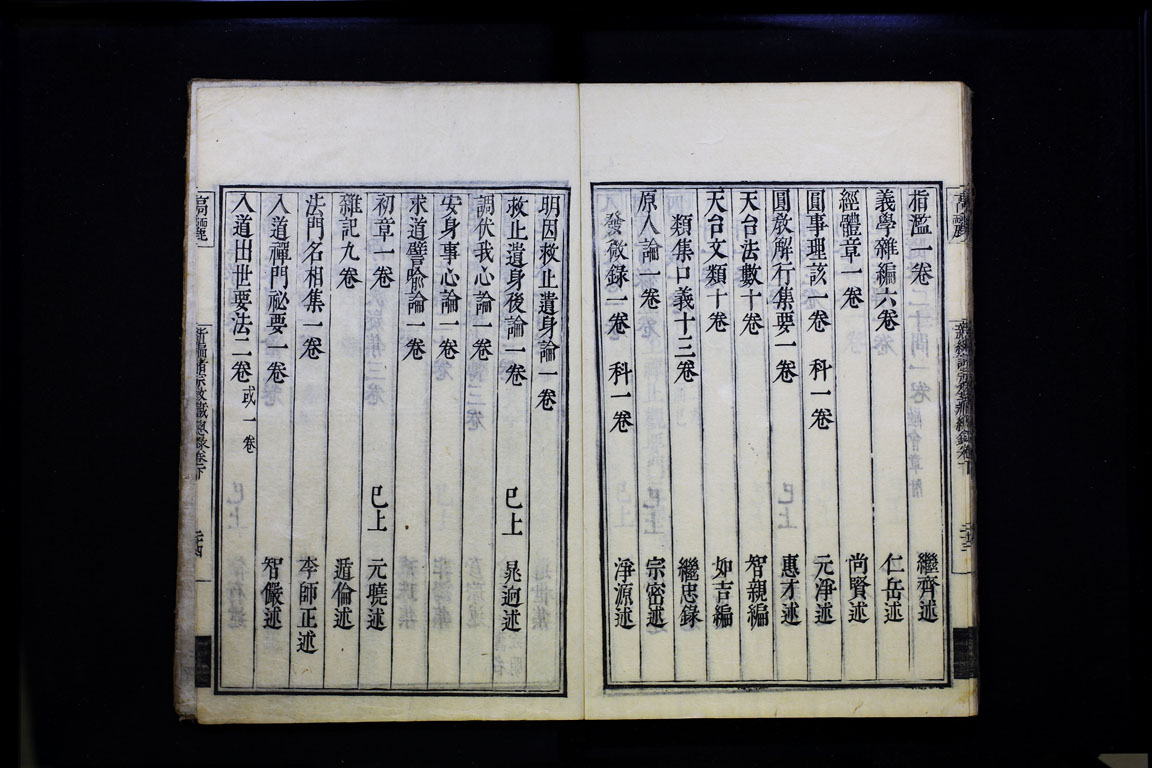 指濫一卷 繼齊述
義學雜編六卷 仁岳述
經體章一卷 尚賢述
圓事理該一卷 科一卷 元淨述
圓敎解行集要一卷 巳上 惠才述
天台法數十卷 智親編
天台文類十卷 如吉編
類集口義十三卷 繼忠錄
原人論一卷 宗密述
發微錄一卷 科一卷 淨源述
明因救止遺身論一卷
救止遺身後論一卷 巳上 晁迥述
調伏我心論一卷
安身事心論一卷
求道譬喩論一卷
初章一卷 巳上 元曉述
雜記九卷 遁倫述
法門名相集一卷 李師正述
入道禪門祕要一卷 智儼述
入道出世要法二卷 或一卷
高麗
新編諸宗敎藏總錄卷下